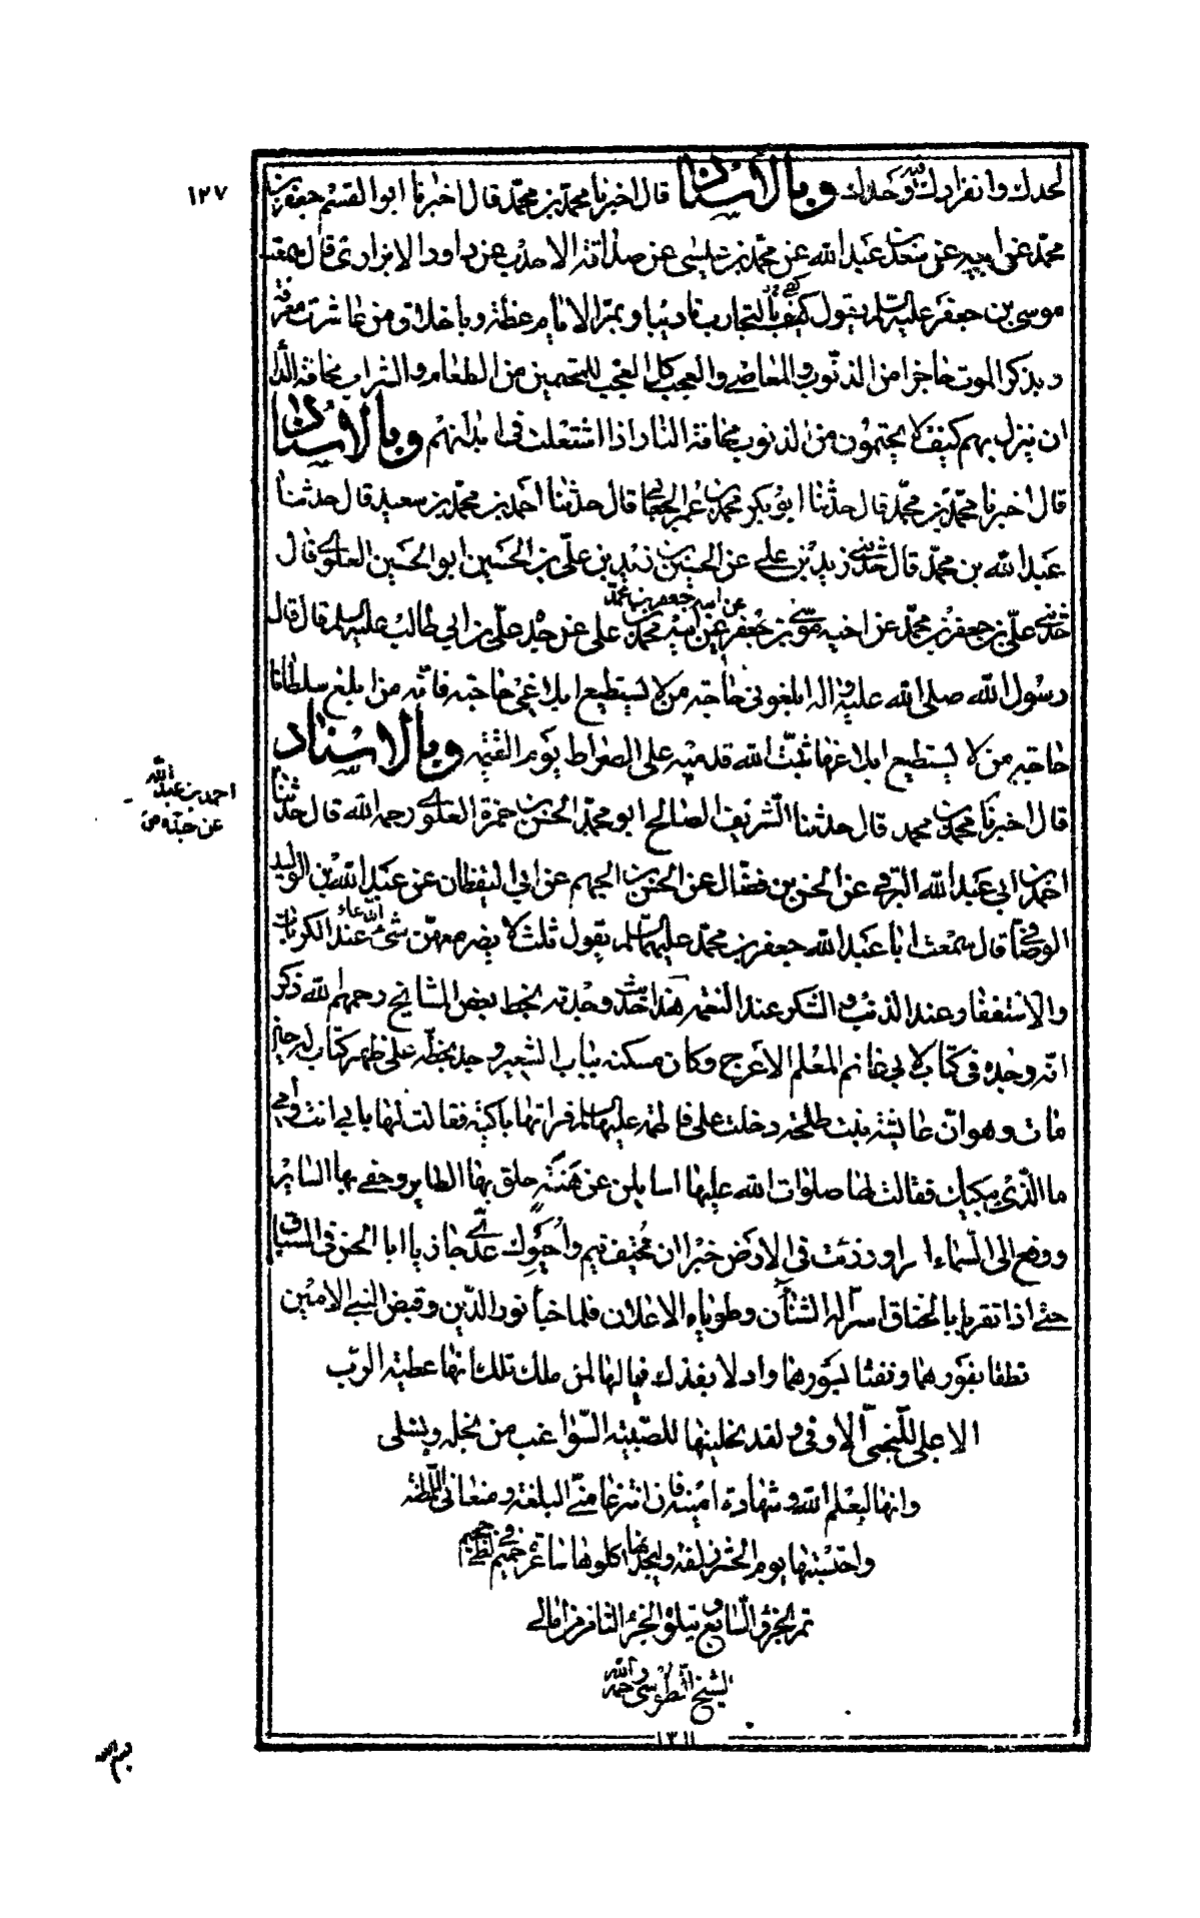 ١٢٧
لحدك وانفرادك وحدك وبالاسناد قال اخبرنا محمد بن محمد قال اخبرنا ابو القسم جعفر بن
محمد عن ابيه عن سعد بن عبد الله عن محمد بن عيسى عن عن داود الابزارى قال سمعت
موسى بن جعفر عليه السلم يقول كفى بالتجارب تاديبا وبممر الايام عظة وباخلاق من عاشرت معرفة
وبذكر الموت حاجزا من الذنوب والمعاصي والعجب كل العجب للمحتمين من الطعام والشراب مخافة الداء
ان ينزل بهم كيف لا يحتمون من الذنوب مخافة النار اذا اشتعلت فى ابدانهم وبالاسناد
قال اخبرنا محمد بن محمد قال حدثنا ابو بكر محمد بن عمر الجعابي قال حدثنا احمد بن محمد بن سعيد قال حدثنا
عبد الله بن محمد قال حدثني زيد بن علي عن الحسين بن زيد بن علي بن الحسين ابو الحسين العلوي قال
حدثني علي بن جعفر بن محمد عن اخيه موسى بن جعفر عن ابيه جعفر بن محمد عن ابيه محمد بن على عن جده علي بن ابي طالب عليهم السلم قال قال
رسول الله صلى الله عليه واله ابلغوني حاجة من لا يستطيع ابلاغي حاجته فانه من ابلغ سلطانا
حاجة من لا يستطيع ابلاغها ثبت الله قدميه على الصراط يوم القيمة وبالاسناد
قال اخبرنا محمد بن محمد قال حدثنا الشريف الصالح ابو محمد الحسن بن حمزة العلوي رحمه الله قال حدثنا
احمد بن عبد الله
عن جده
احمد بن ابي عبد الله البرقي عن الحسن بن فضال عن الحسن بن الجهم عن ابي اليقظان عن عبيد الله بن الوليد
الوصافي قال سمعت ابا عبد الله جعفر بن محمد عليهما السلم يقول ثلث لا يضر معهن شيء الدعاء عند الكربات
والاستغفار عند الذنب والشكر عند النعمة هذا حديث وجدته بخط بعض المشايخ رحمهم الله ذكر
انه وجده فى كتاب لابي غانم المعلم الاعرج وكان مسكنه بباب الشعير وجد بخطه على ظهر كتاب له حين
مات وهو ان عايشة بنت طلحة دخلت على فاطمة عليها السلم فراتها باكية فقالت لها بابي انت وامي
ما الذي يبكيك فقالت لها صلوات الله عليها اسايلتي عن هنة حلق بها الطاير وحفي بها الساير
ورفع الى السماء اثرا ورزئت فى الارض خبرا ان قحيف تيم واحيوك عدي جاريا ابا الحسن فى السباق
حتى اذا تقربا بالخناق اسرا له الشنان وطوياه الاعلان فلما خبا نور الدين وقبض النبي الامين
نطقا بفورهما ونفثا بسورهما وادلا بفدك فيالها لمن ملك تلك انها عطية الرب
الاعلى للنجي الاوفى ولقد نحلنيها للصبية السواغب من نجله ونسلى
وانها ليعلم الله وشهادة امينه فان انتزعا مني البلغة ومنعاني اللمظة
واحتسبتها يوم الحشر زلفة وليجدنها اكلوها ساعرة حميم في لظى جحيم
تم الجزء السابع ويتلوه الجزء الثامن من امالي
الشيخ الطوسي رحمه الله
١٣١١
بسم الله